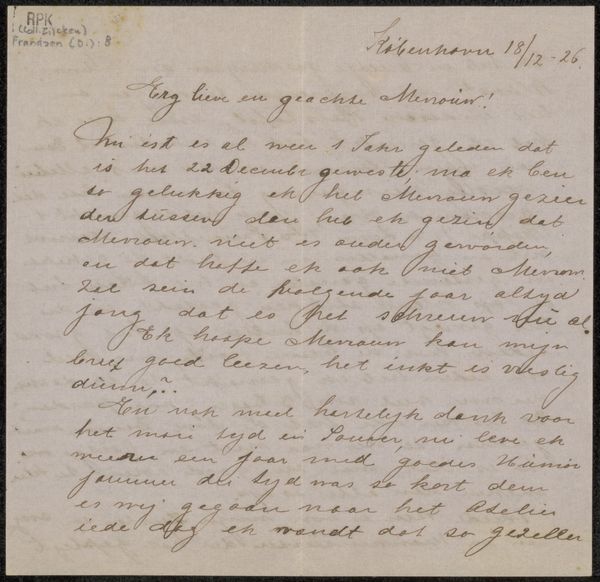 RPK
(Coll. Zilcken)
Frandsen (D.): 8
København 18/12-26.
Erg lieve en geachte Mevrouw!
Nu ist es al weer 1 Jahr geleden dat
is het 22 December geweest, ma ek ben
so gelukkig ek het Mevrouw gezien
der tussen den heb ek gezin dat
Mevrouw niet es ouder gewörden,
en dat hoffe ek ook niet Mevrow.
zal sein de folgende jaar altyd
jong dat es het schreuw nü al.
Ek hoope Mevrouw kan mijn
brief goed leezen, het inkt is
dünn,
En nok meel hartelijk dank voor
het moie tyd in nu leve ek
een jaar med goedes Humör
jammer die tyd was so kort dem
es wij gegaan naar het Atelier
iede dag ek wandt dat so gezeller